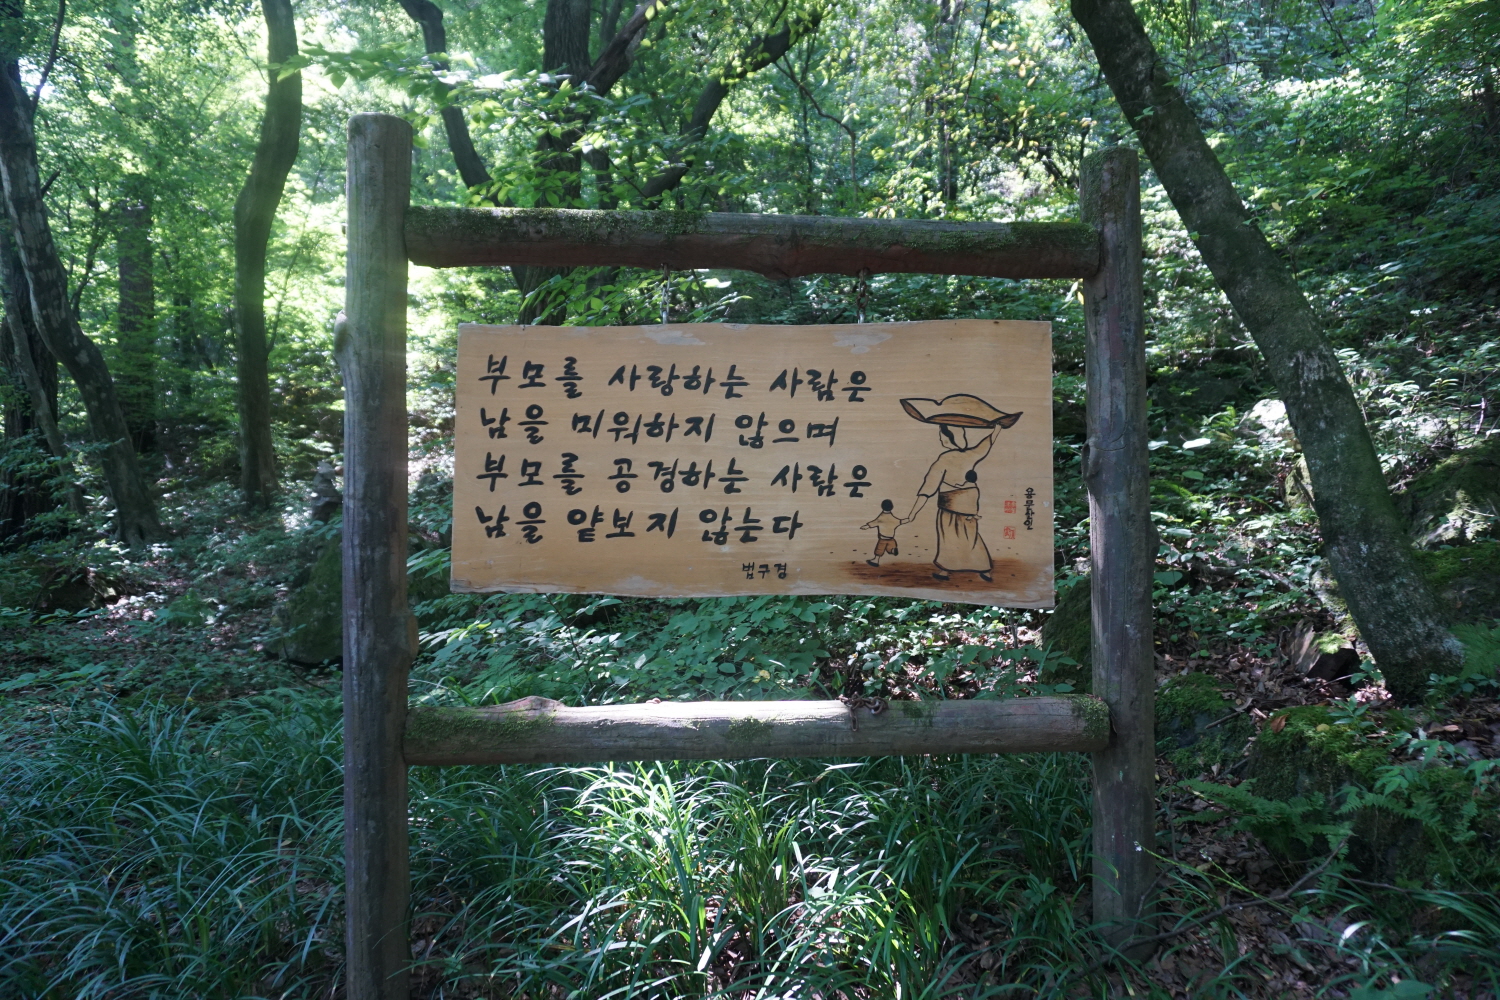 부모를 사랑하는 사람은
남을 미워하지 않으며
부모를 공경하는 사람은
남을 얕보지 않는다
법구경